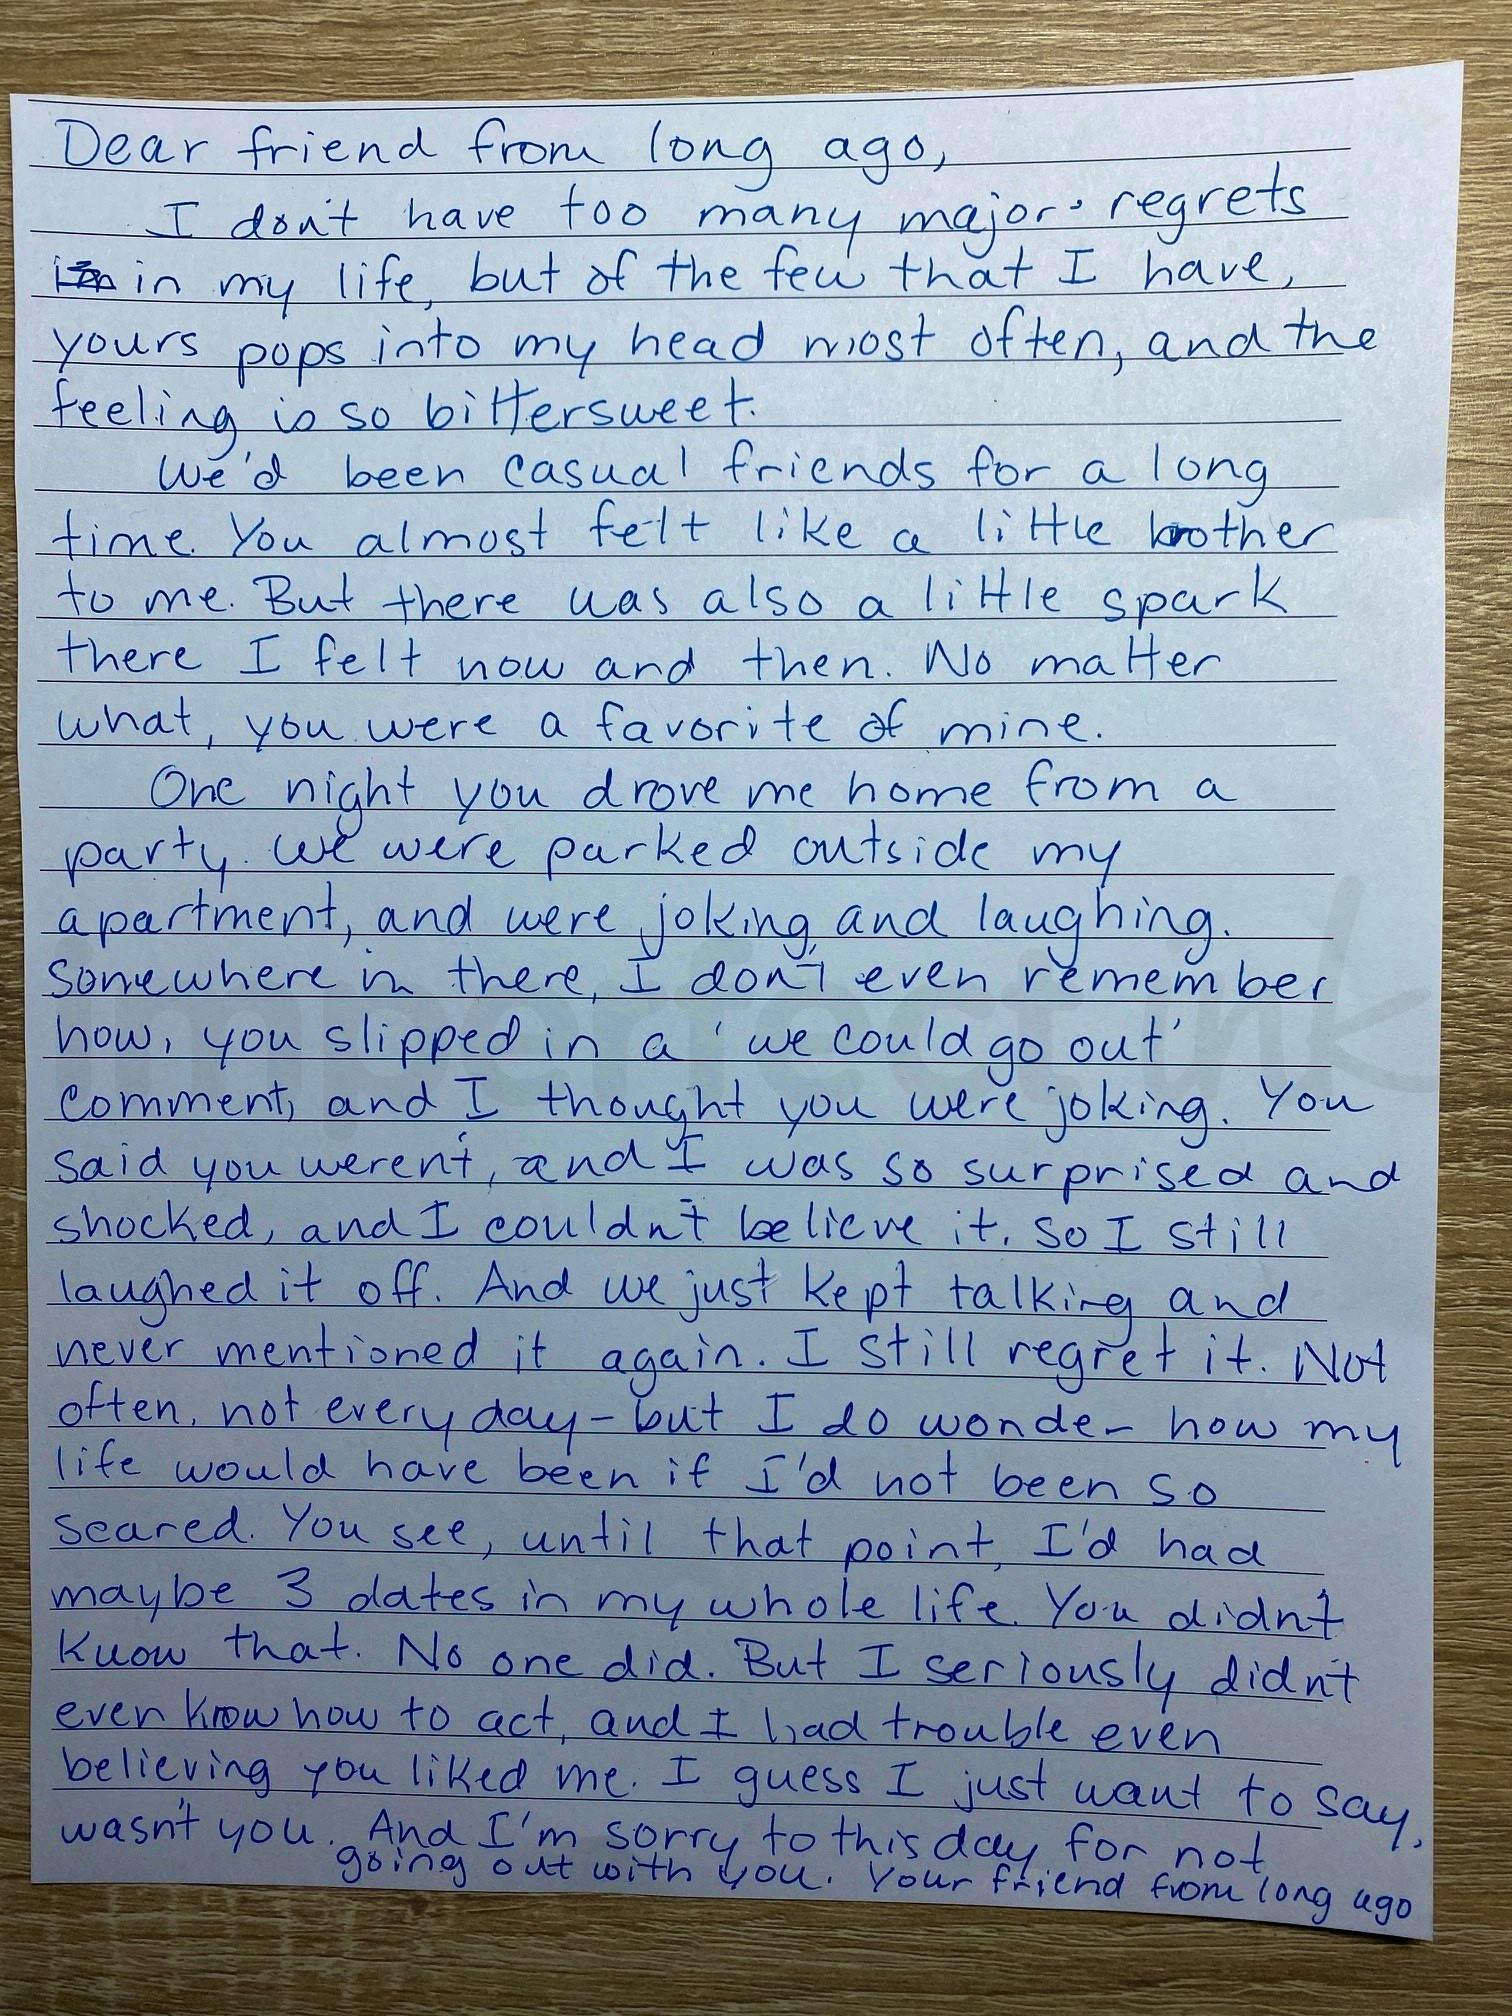 Dear friend from long ago,
I don't have too many major regrets
in my life, but of the few that I have,
yours pops into my head most often, and the
feeling is so bittersweet.
We'd been casual friends for a long
time. You almost felt like a little brother
to me. But there was also a little spark
there I felt now and then. No matter
what, you were a favorite of mine.
One night you drove me home from a
party. We were parked outside my
apartment, and were joking and laughing.
Somewhere in there, I don't even remember
how, you slipped in a 'we could go out'
comment, and I thought you were joking. You
said you weren't, and I was so surprised and
shocked, and I couldn't believe it. So I still
laughed it off. And we just kept talking and
never mentioned it again. I still regret it. Not
often, not every day - but I do wonder how my
life would have been if I'd not been so
scared. You see, until that point, I'd had
maybe 3 dates in my whole life. You didn't
know that. No one did. But I seriously didn't
even know how to act, and I had trouble even
believing you liked me. I guess I just want to say,
wasn't you. And I'm sorry to this day for not
going out with you. Your friend from long ago
imperfect ink